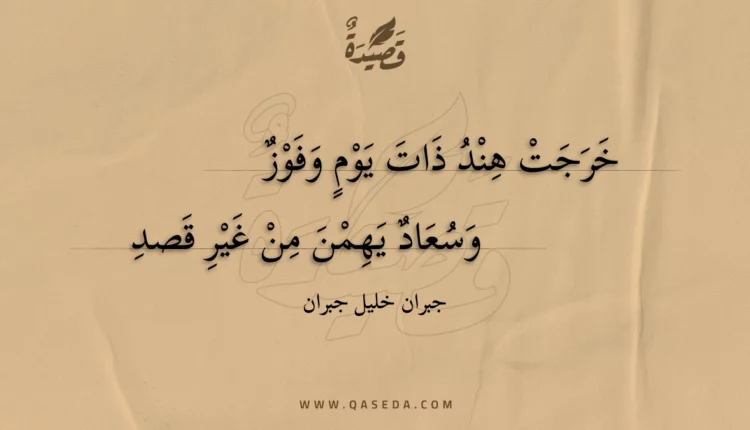 قَصِيدَةٌ
خَرَجَتْ هِنْدُ ذَاتَ يَوْمٍ وَفَوْزٌ
وَسُعَادٌ يَهِمْنَ مِنْ غَيْرِ قَصدِ
جبران خليل جبران
WWW.QASEDA.COM